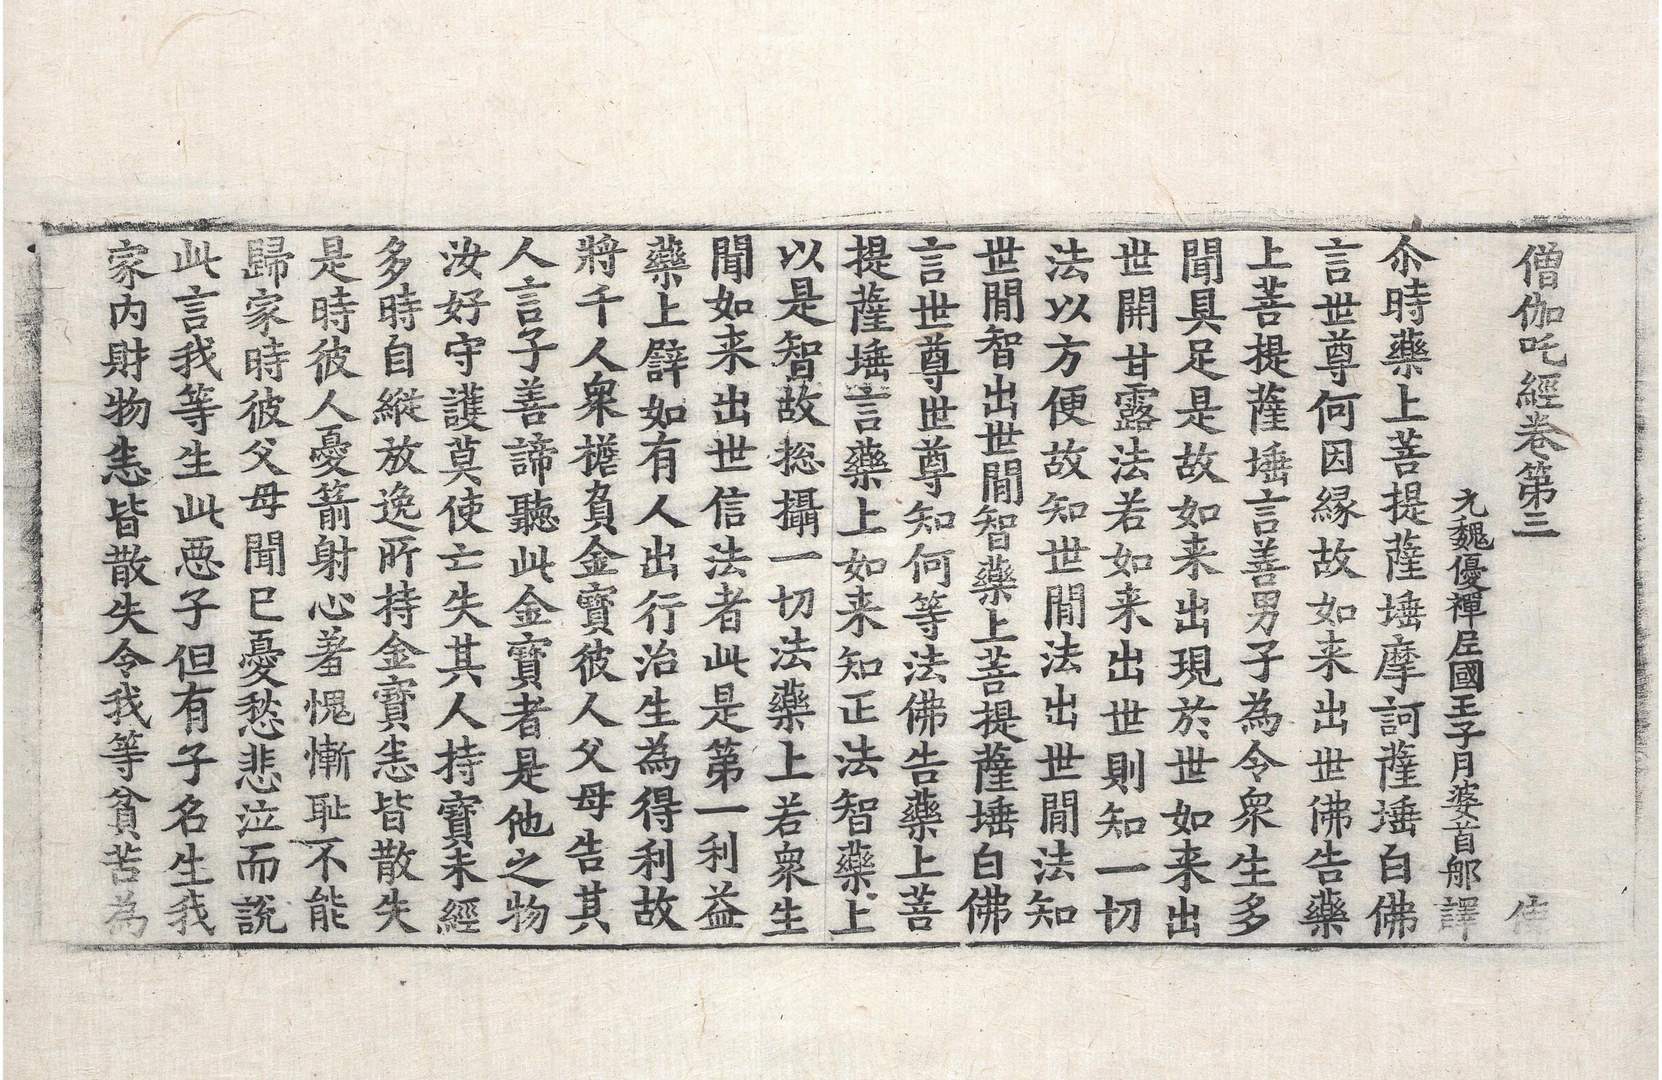 僧伽吒經卷第三 使
元魏優禪尼國王子月婆首那譯
尒時藥上菩提薩埵摩訶薩埵白佛
言世尊何因縁故如来出世佛告藥
上菩提薩埵言善男子為令衆生多
聞具足是故如来出現於世如来出
世開甘露法若如来出世則知一切
法以方便故知世閒法出世閒法知
世閒智出世閒智藥上菩提薩埵白佛
言世尊世尊知何等法佛告藥上菩
提薩埵言藥上如来知正法智藥上
以是智故惣攝一切法藥上若衆生
聞如来出世信法者此是第一利益
藥上譬如有人出行治生為得利故
將千人衆擔負金寶彼人父母告其
人言子善諦聽此金寶者是他之物
汝好守護莫使亡失其人持寶未經
多時自縱放逸所持金寶悉皆散失
是時彼人憂箭射心著愧慚耻不能
歸家時彼父母聞已憂愁悲泣而說
此言我等生此惡子但有子名生我
家内財物悉皆散失令我等貧苦為